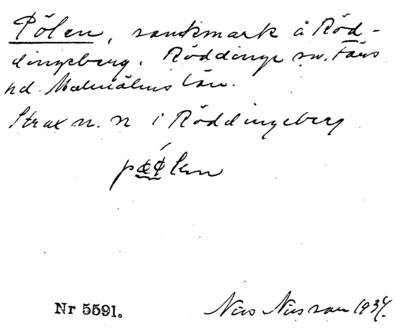 Pölen, sankmark å Röd-
dingeberg. Röddinge sn. Färs
hd. Malmöhus län.
Strax n. n i Röddingeberg
Nr 5591. Nils Nilsson 1934.